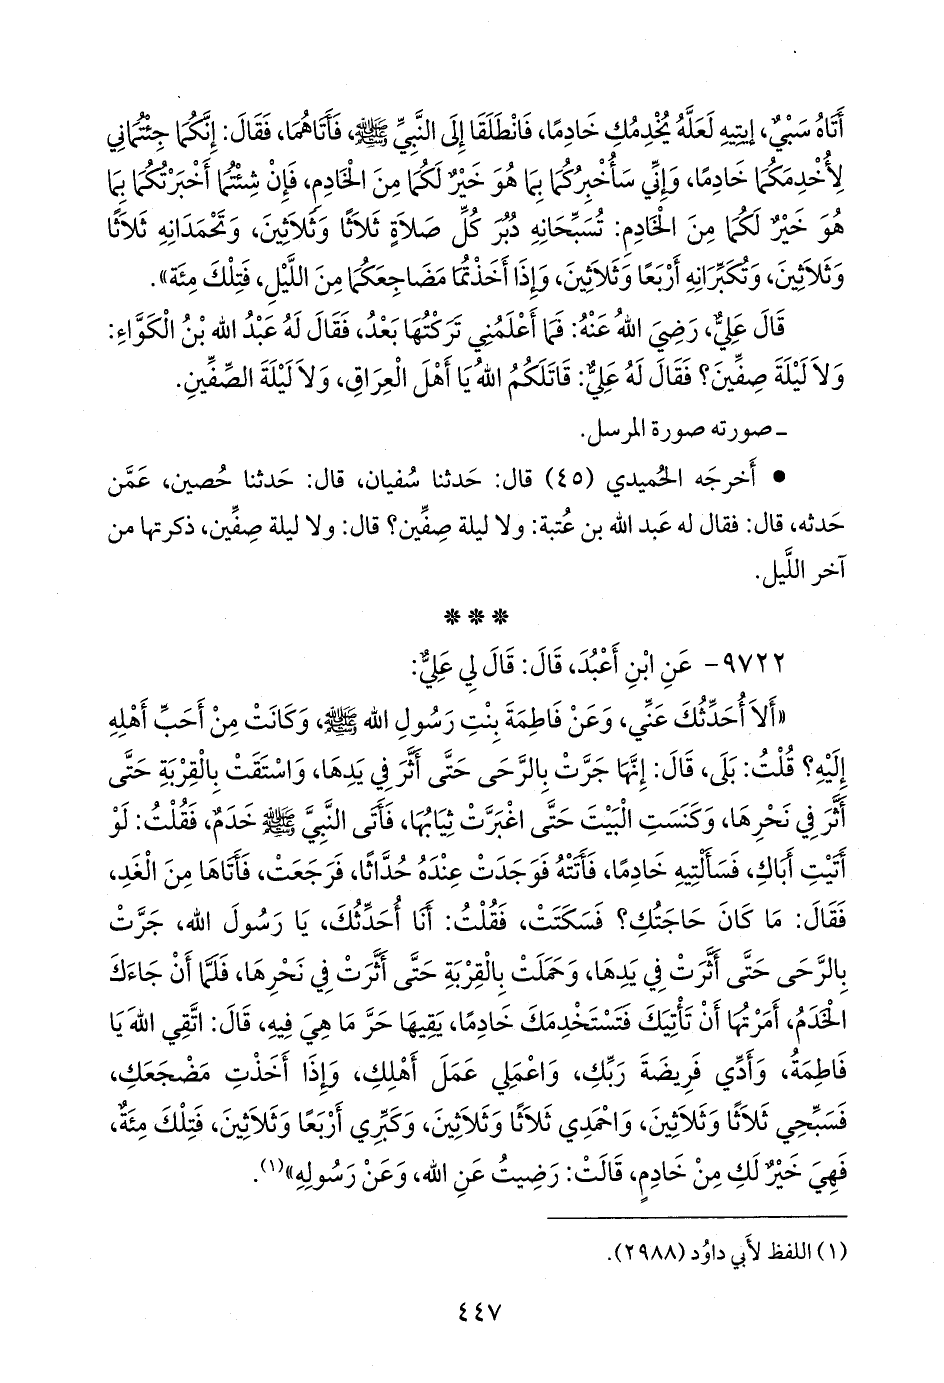 أَتَاهُ سَبْيٌ، إِيتِيهِ لَعَلَّهُ يُخْدِمُكِ خَادِمًا، فَانْطَلَقَا إِلَى النَّبِيِّ ﷺ، فَأَتَاهُمَا، فَقَالَ: إِنَّكُمَا جِئْتُمَانِي
لِأُخْدِمَكُمَا خَادِمًا، وَإِنِّي سَأُخْبِرُكُمَا بِمَا هُوَ خَيْرٌ لَكُمَا مِنَ الْخَادِمِ، فَإِنْ شِئْتُمَا أَخْبَرْتُكُمَا بِمَا
هُوَ خَيْرٌ لَكُمَا مِنَ الْخَادِمِ: تُسَبِّحَانِهِ دُبُرَ كُلِّ صَلاَةٍ ثَلاَثًا وَثَلاَثِينَ، وَتَحْمَدَانِهِ ثَلاَثًا
وَثَلاَثِينَ، وَتُكَبِّرَانِهِ أَرْبَعًا وَثَلاَثِينَ، وَإِذَا أَخَذْتُمَا مَضَاجِعَكُمَا مِنَ اللَّيْلِ، فَتِلْكَ مِئَة».
قَالَ عَلِيٌّ، رَضِيَ اللهُ عَنْهُ: فَمَا أَعْلَمُنِي تَرَكْتُهَا بَعْدُ، فَقَالَ لَهُ عَبْدُ الله بْنُ الْكَوَّاءِ:
وَلاَ لَيْلَةَ صِفِّينَ؟ فَقَالَ لَهُ عَلِيٌّ: قَاتَلَكُمُ اللهُ يَا أَهْلَ الْعِرَاقِ، وَلاَ لَيْلَةَ الصِّفِّينِ.
ـ صورته صورة المرسل.
• أَخرجَه الحُميدي (٤٥) قال: حَدثنا سُفيان، قال: حَدثنا حُصين، عَمَّن
حَدثه، قال: فقال له عَبد الله بن عُتبة: ولا ليلة صِفِّين؟ قال: ولا ليلة صِفِّين، ذكرتها من
آخر اللَّيل.
* * *
٩٧٢٢- عَنِ ابْنِ أَعْبُدَ، قَالَ: قَالَ لِي عَلِيٌّ:
«أَلاَ أُحَدِّثُكَ عَنِّي، وَعَنْ فَاطِمَةَ بِنْتِ رَسُولِ الله ﷺ، وَكَانَتْ مِنْ أَحَبِّ أَهْلِهِ
إِلَيْهِ؟ قُلْتُ: بَلَى، قَالَ: إِنَّهَا جَرَّتْ بِالرَّحَى حَتَّى أَثَّرَ فِي يَدِهَا، وَاسْتَقَتْ بِالْقِرْبَةِ حَتَّى
أَثَّرَ فِي نَحْرِهَا، وَكَنَسَتِ الْبَيْتَ حَتَّى اغْبَرَّتْ ثِيَابُهَا، فَأَتَى النَّبِيَّ ﷺ خَدَمٌ، فَقُلْتُ: لَوْ
أَتَيْتِ أَبَاكِ، فَسَأَلْتِيهِ خَادِمًا، فَأَتَتْهُ فَوَجَدَتْ عِنْدَهُ حُدَّاثًا، فَرَجَعَتْ، فَأَتَاهَا مِنَ الْغَدِ،
فَقَالَ: مَا كَانَ حَاجَتُكِ؟ فَسَكَتَتْ، فَقُلْتُ: أَنَا أُحَدِّثُكَ، يَا رَسُولَ الله، جَرَّتْ
بِالرَّحَى حَتَّى أَثَّرَتْ فِي يَدِهَا، وَحَمَلَتْ بِالْقِرْبَةِ حَتَّى أَثَّرَتْ فِي نَحْرِهَا، فَلَمَّا أَنْ جَاءَكَ
الْخَدَمُ، أَمَرْتُهَا أَنْ تَأْتِيَكَ فَتَسْتَخْدِمَكَ خَادِمًا، يَقِيهَا حَرَّ مَا هِيَ فِيهِ، قَالَ: اتَّقِي اللهَ يَا
فَاطِمَةُ، وَأَدِّي فَرِيضَةَ رَبِّكِ، وَاعْمَلِي عَمَلَ أَهْلِكِ، وَإِذَا أَخَذْتِ مَضْجَعَكِ،
فَسَبِّحِي ثَلاَثًا وَثَلاَثِينَ، وَاحْمَدِي ثَلاَثًا وَثَلاَثِينَ، وَكَبِّرِي أَرْبَعًا وَثَلاَثِينَ، فَتِلْكَ مِئَةٌ،
فَهِيَ خَيْرٌ لَكِ مِنْ خَادِمٍ، قَالَتْ: رَضِيتُ عَنِ الله، وَعَنْ رَسُولِهِ»(١).
(١) اللفظ لأَبي داوُد (٢٩٨٨).
٤٤٧